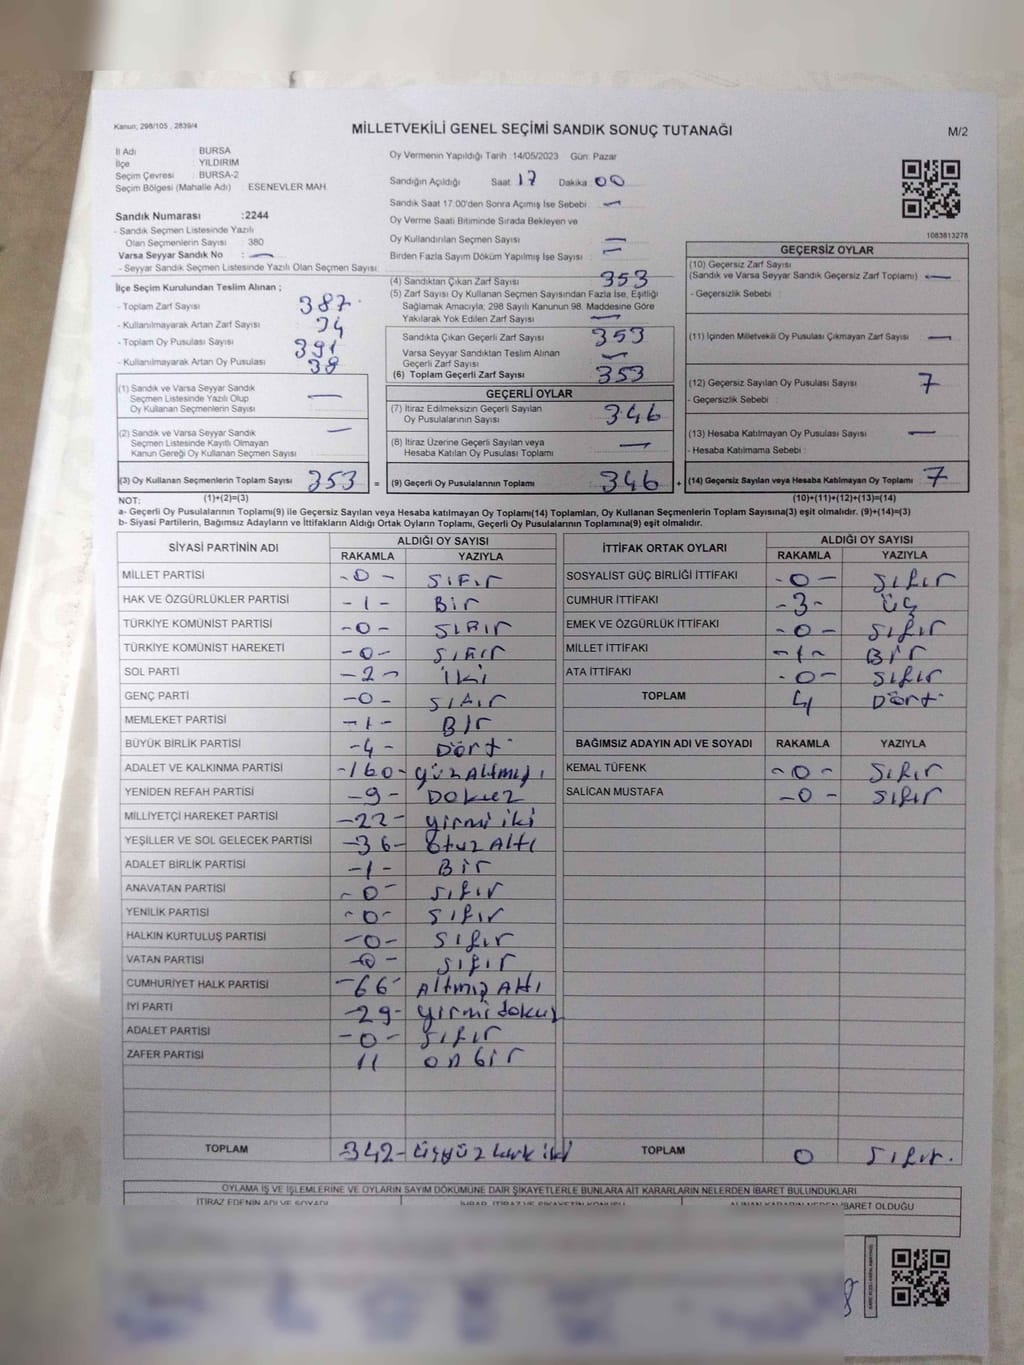 Kanun; 298/105 , 2839/4
MİLLETVEKİLİ GENEL SEÇİMİ SANDIK SONUÇ TUTANAĞI
M/2
İl Adı : BURSA
İlçe : YILDIRIM
Seçim Çevresi : BURSA-2
Seçim Bölgesi (Mahalle Adı) ESENEVLER MAH.
Sandık Numarası :2244
- Sandık Seçmen Listesinde Yazılı
Olan Seçmenlerin Sayısı : 380
Varsa Seyyar Sandık No : —
- Seyyar Sandık Seçmen Listesinde Yazılı Olan Seçmen Sayısı:
İlçe Seçim Kurulundan Teslim Alınan ;
- Toplam Zarf Sayısı 387
- Kullanılmayarak Artan Zarf Sayısı 34
- Toplam Oy Pusulası Sayısı 391
- Kullanılmayarak Artan Oy Pusulası 38
(1) Sandık ve Varsa Seyyar Sandık
Seçmen Listesinde Yazılı Olup
Oy Kullanan Seçmenlerin Sayısı —
(2) Sandık ve Varsa Seyyar Sandık
Seçmen Listesinde Kayıtlı Olmayan
Kanun Gereği Oy Kullanan Seçmen Sayısı —
(3) Oy Kullanan Seçmenlerin Toplam Sayısı 353 =
Oy Vermenin Yapıldığı Tarih :14/05/2023 Gün: Pazar
Sandığın Açıldığı Saat 17 Dakika 00
Sandık Saat 17.00'den Sonra Açımış İse Sebebi : —
Oy Verme Saati Bitiminde Sırada Bekleyen ve
Oy Kullandırılan Seçmen Sayısı —
Birden Fazla Sayım Döküm Yapılmış İse Sayısı : —
(4) Sandıktan Çıkan Zarf Sayısı 353
(5) Zarf Sayısı Oy Kullanan Seçmen Sayısından Fazla İse, Eşitliği
Sağlamak Amacıyla; 298 Sayılı Kanunun 98. Maddesine Göre
Yakılarak Yok Edilen Zarf Sayısı —
Sandıkta Çıkan Geçerli Zarf Sayısı 353
Varsa Seyyar Sandıktan Teslim Alınan
Geçerli Zarf Sayısı —
(6) Toplam Geçerli Zarf Sayısı 353
GEÇERLİ OYLAR
(7) İtiraz Edilmeksizin Geçerli Sayılan
Oy Pusulalarının Sayısı 346
(8) İtiraz Üzerine Geçerli Sayılan veya
Hesaba Katılan Oy Pusulası Toplamı —
(9) Geçerli Oy Pusulalarının Toplamı 346 +
1083813278
GEÇERSİZ OYLAR
(10) Geçersiz Zarf Sayısı
(Sandık ve Varsa Seyyar Sandık Geçersiz Zarf Toplamı) —
- Geçersizlik Sebebi :
(11) İçinden Milletvekili Oy Pusulası Çıkmayan Zarf Sayısı —
(12) Geçersiz Sayılan Oy Pusulası Sayısı 7
- Geçersizlik Sebebi :
(13) Hesaba Katılmayan Oy Pusulası Sayısı —
- Hesaba Katılmama Sebebi :
(14) Geçersiz Sayılan veya Hesaba Katılmayan Oy Toplamı 7
NOT: (1)+(2)=(3) (10)+(11)+(12)+(13)=(14)
a- Geçerli Oy Pusulalarının Toplamı(9) ile Geçersiz Sayılan veya Hesaba katılmayan Oy Toplamı(14) Toplamları, Oy Kullanan Seçmenlerin Toplam Sayısına(3) eşit olmalıdır. (9)+(14)=(3)
b- Siyasi Partilerin, Bağımsız Adayların ve İttifakların Aldığı Ortak Oyların Toplamı, Geçerli Oy Pusulalarının Toplamına(9) eşit olmalıdır.
SİYASİ PARTİNİN ADI ALDIĞI OY SAYISI
RAKAMLA YAZIYLA
MİLLET PARTİSİ -0- SIFIR
HAK VE ÖZGÜRLÜKLER PARTİSİ -1- Bir
TÜRKİYE KOMÜNİST PARTİSİ -0- SIFIR
TÜRKİYE KOMÜNİST HAREKETİ -0- SIFIR
SOL PARTİ -2- iki
GENÇ PARTİ -0- SIFIR
MEMLEKET PARTİSİ -1- BIR
BÜYÜK BİRLİK PARTİSİ -4- Dört
ADALET VE KALKINMA PARTİSİ -160- yüzAltmış
YENİDEN REFAH PARTİSİ -9- Dokuz
MİLLİYETÇİ HAREKET PARTİSİ -22- yirmi iki
YEŞİLLER VE SOL GELECEK PARTİSİ -36- otuz Altı
ADALET BİRLİK PARTİSİ -1- Bir
ANAVATAN PARTİSİ -0- sıfır
YENİLİK PARTİSİ -0- sıfır
HALKIN KURTULUŞ PARTİSİ -0- sıfır
VATAN PARTİSİ -0- sıfır
CUMHURİYET HALK PARTİSİ -66- Altmış Altı
İYİ PARTİ -29- yirmi dokuz
ADALET PARTİSİ -0- sıfır
ZAFER PARTİSİ 11 on bir
TOPLAM -342- üçyüz kırk iki
İTTİFAK ORTAK OYLARI ALDIĞI OY SAYISI
RAKAMLA YAZIYLA
SOSYALİST GÜÇ BİRLİĞİ İTTİFAKI -0- sıfır
CUMHUR İTTİFAKI -3- üç
EMEK VE ÖZGÜRLÜK İTTİFAKI -0- sıfır
MİLLET İTTİFAKI -1- Bir
ATA İTTİFAKI -0- sıfır
TOPLAM 4 Dört
BAĞIMSIZ ADAYIN ADI VE SOYADI RAKAMLA YAZIYLA
KEMAL TÜFENK -0- sıfır
SALİCAN MUSTAFA -0- sıfır
TOPLAM 0 sıfır.
OYLAMA İŞ VE İŞLEMLERİNE VE OYLARIN SAYIM DÖKÜMÜNE DAİR ŞİKAYETLERLE BUNLARA AİT KARARLARIN NELERDEN İBARET BULUNDUKLARI
İTİRAZ EDENİN ADI VE SOYADI İHBAR, İTİRAZ VE ŞİKAYETİN KONUSU ALINAN KARARIN NEDEN İBARET OLDUĞU